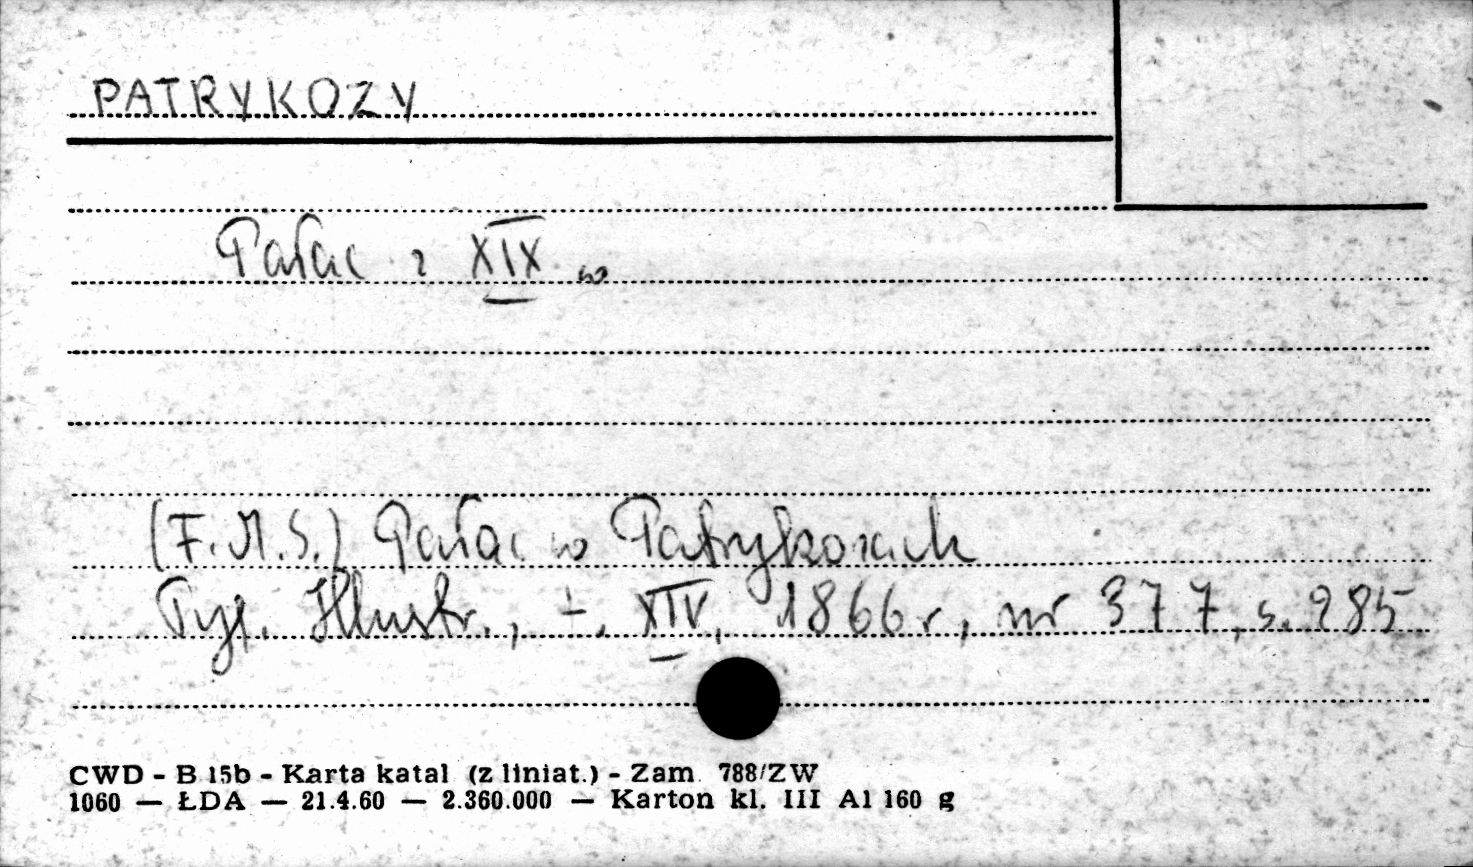 PATRYKOZY
Pałac z XIX w
(F.M.S.) Pałac w Patrykozach
Tyg. Illustr., t. XIV, 1866 r, nr 377, s. 285
CWD - B 15b - Karta katal (z liniat.) - Zam. 788/ZW
1060 — ŁDA — 21.4.60 — 2.360.000 — Karton kl. III A1 160 g